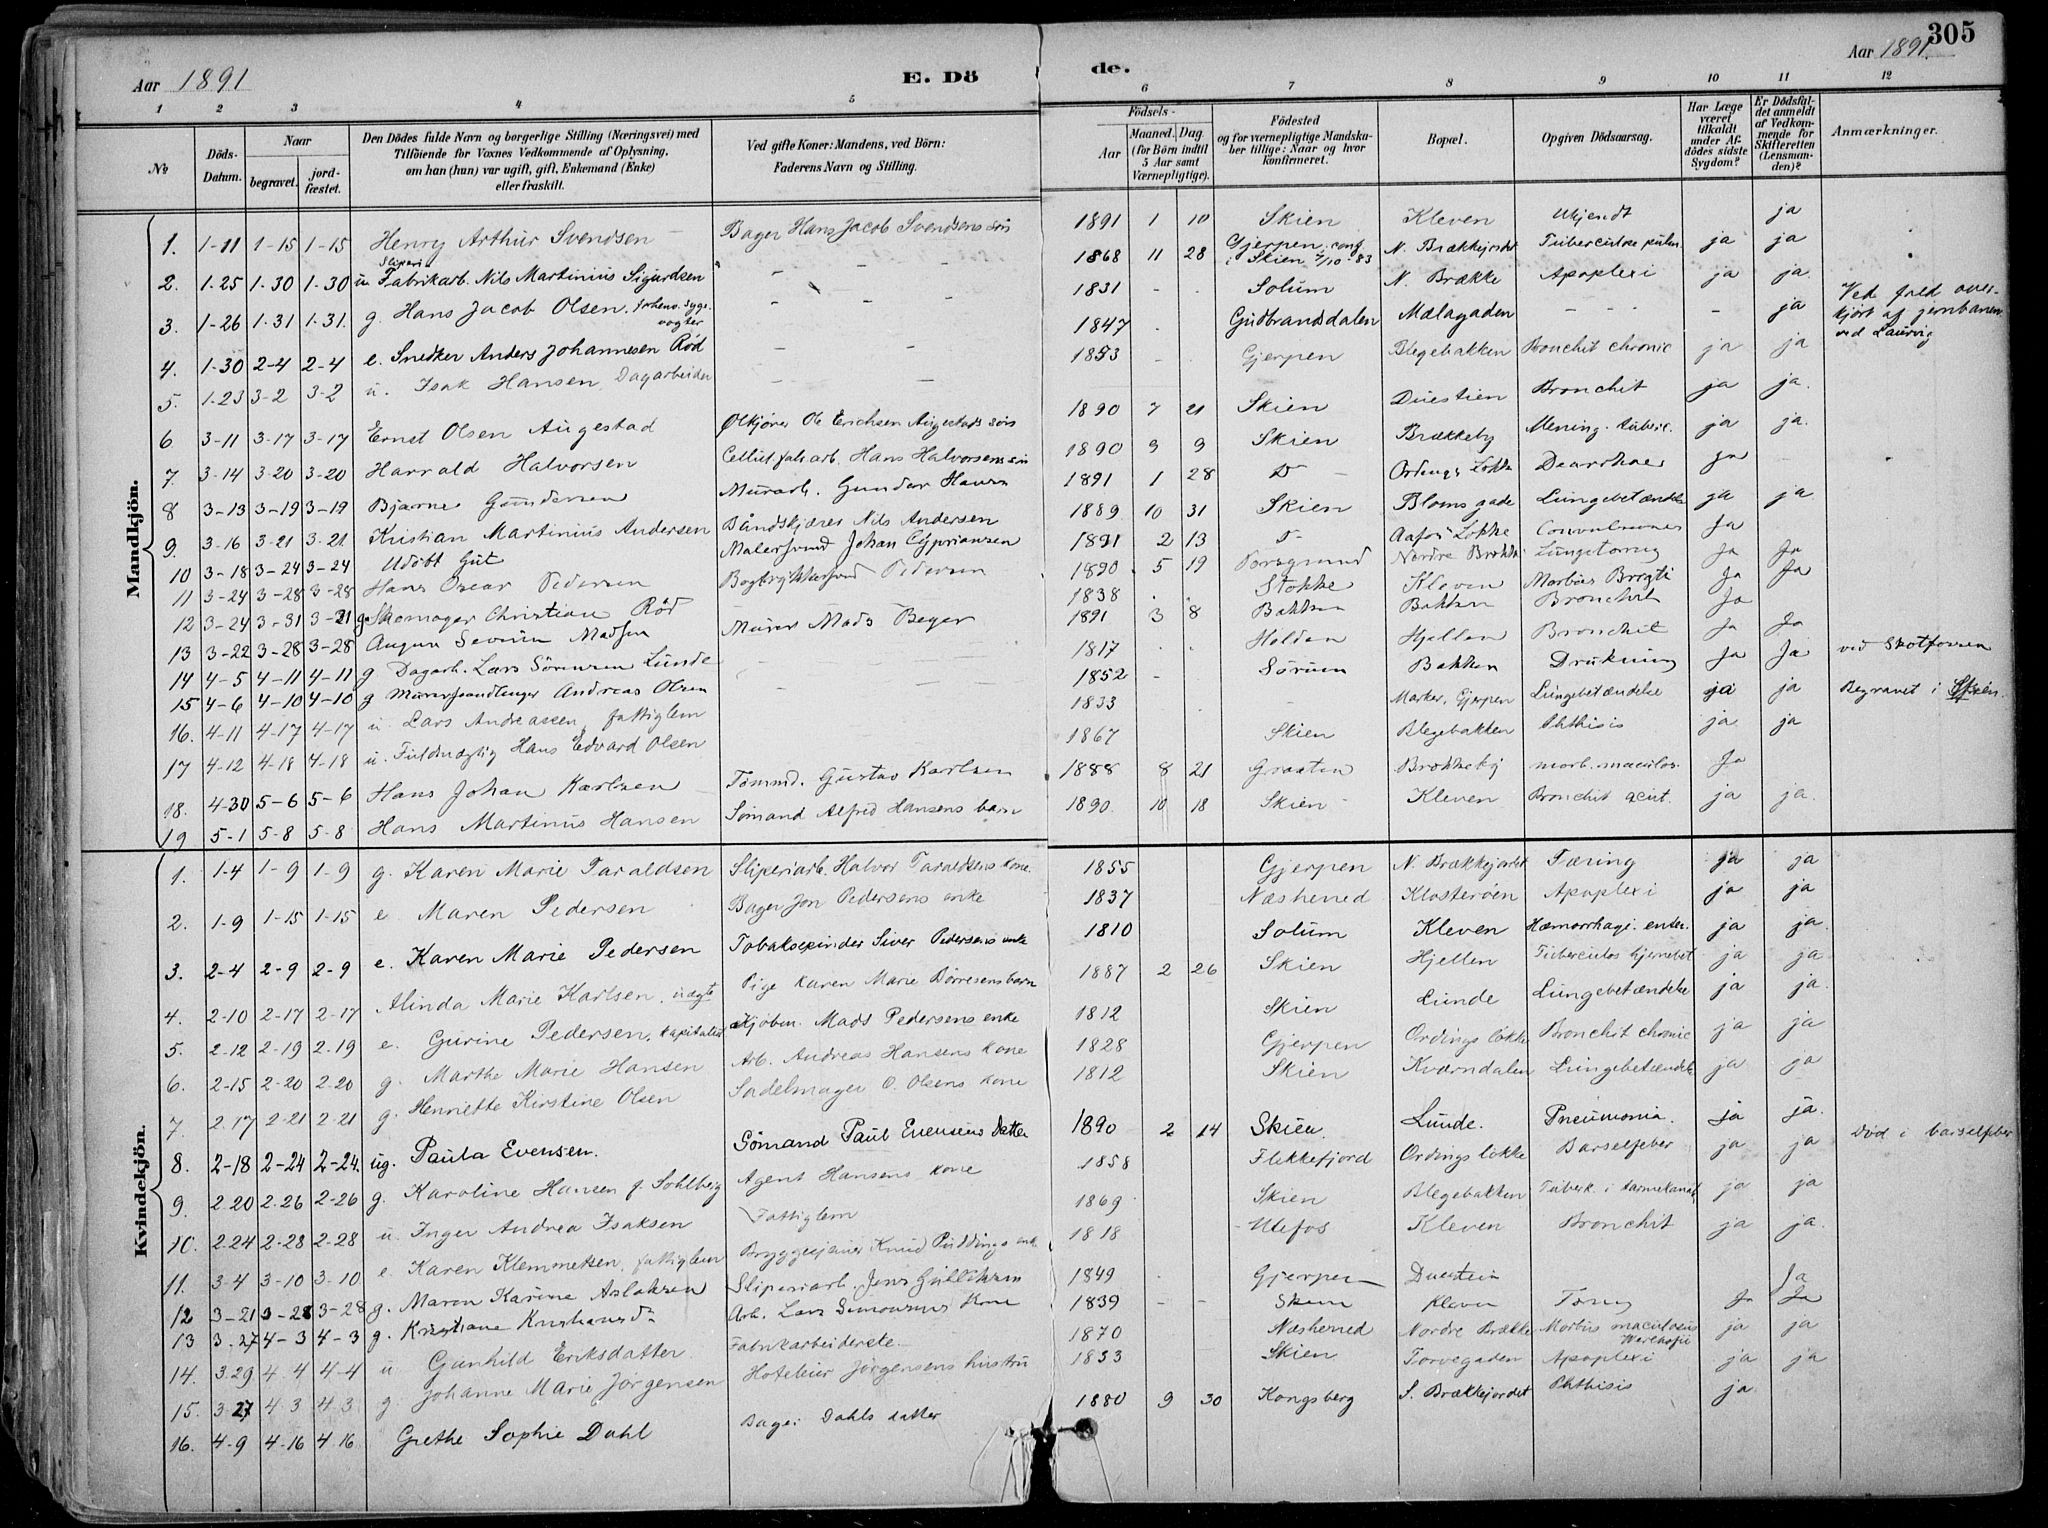 305
Aar 1891
E. Dö
de.
Aar 1891.
1 2 3 4 5 6 7 8 9 10 11 12
No
Döds-Datum.
Naar begravet. jordfæstet.
Den Dödes fulde Navn og borgerlige Stilling (Næringsvei) med Tilföiende for Voxnes Vedkommende af Oplysning, om han (hun) var ugift, gift, Enkemand (Enke) eller fraskilt.
Ved gifte Koner: Mandens, ved Börn: Faderens Navn og Stilling.
Födsels-
Aar Maaned. Dag. (for Börn indtil 5 Aar samt Værnepligtige).
Födested og for værnepligtige Mandskaber tillige: Naar og hvor konfirmeret.
Bopæl.
Opgiven Dödsaarsag.
Har Læge været tilkaldt under Afdödes sidste Sygdom?
Er Dödsfaldet anmeldt af Vedkommende for Skifteretten (Lensmanden)?
Anmærkninger.
Mandkjön.
1. 1-11 1-15 1-15 Henry Arthur Svendsen Bager Hans Jacob Svendsens sön 1891 1 10 Skien Kleven Ukjendt ja
2. 1-25 1-30 1-30 u. Sliperi Fabrikarb. Nils Martinius Sigurdsen 1868 11 28 Gjerpen, conf. i Skien 7/10-83 N. Brækkejordet Tuberculose pulm. ja ja
3. 1-26 1-31 1-31. g. Hans Jacob Olsen, vogter 1831 Solum N. Brække Apoplexi ja ja
4. 1-30 2-4 2-4 e. Snedker Anders Johannesen Röd 1847 Gudbrandsdalen Mælagaden ja Ved fald overkjört af jernbanen ved Laurvig
5. 1-23 3-2 3-2 u. Isak Hansen, Dagarbeider 1853 Gjerpen Blegebakken Bronchit chronic ja ja
6 3-11 3-17 3-17 Ernst Olsen Augestad Ølkjörer Ole Erichsen Augestads sön 1890 7 21 Skien Duestien Bronchit ja ja.
7. 3-14 3-20 3-20 Harrald Halvorsen Cellul.fabarb. Hans Halvorsens sön 1890 9 9 Skien Brækkeby Mening. tuberc. ja ja.
8 3-13 3-19 3-19 Bjarne Gundersen Murarb. Gunder Hansen 1891 1 28 D Ordings Lökke ja
9. 3-16 3-21 3-21 Kristian Martinius Andersen Båndskjærer Nils Andersen 1889 10 31 Skien Bloms gade Lungebetændelse ja ja
10 3-18 3-24 3-24 Udöbt Gut Malersvend Johan Cypriansen 1891 2 13 Lökke Convulsiones Ja
11 3-24 3-28 3-28 Hans Oscar Pedersen Bogtrykkersvend Pedersen 1890 5 19 Porsgrund Nordre Brække Ja Ja
12 3-24 3-31 3-31 g Skomager Christian Röd 1838 Stokke Kleven Morbus Brigti Ja Ja
13 3-22 3-28 3-28 August Severin Madsen Murer Mads Beyer 1891 3 8 Bakken Bakken Bronchit Ja
14 4-5 4-11 4-11 g Dagarb. Lars Sörensen Lunde 1817 Holden Hjellen Bronchit Ja Ja
15 4-6 4-10 4-10 g Murerhandlanger Andreas Olsen 1852 Sörum Bakken Drukning Ja Ja ved Skotfossen
16. 4-11 4-17 4-17 u. Lars Andreassen, fattiglem 1833 Gjerpen Lungebetændelse ja ja Begravet i Skien.
17 4-12 4-18 4-18 u. Fuldmægtig Hans Edvard Olsen 1867 Skien Blegebakken Phthisis ja ja
18. 4-30 5-6 5-6 Hans Johan Karlsen Tömmd. Gustav Karlsen 1888 8 21 Graaten Brækkeby morb. maculos. Ja
19 5-1 5-8 5-8 Hans Martinus Hansen Sömand Alfred Hansens barn 1890 10 18 Skien Kleven Bronchit acut. ja ja.
Kvindekjön.
1. 1-4 1-9 1-9 g. Karen Marie Taraldsen Sliperiarb. Halvor Taraldsens kone. 1855 Gjerpen N. Brækkejordet Tæring ja ja
2. 1-9 1-15 1-15 e. Maren Pedersen Bager Jon Pedersens enke 1837 Næshered Klosteröen Apoplexi ja ja
3. 2-4 2-9 2-9 e. Karen Marie Pedersen Tobakspinder Siver Pedersens enke 1810 Solum Kleven Hæmorrhagi. enter. ja ja.
4. 2-10 2-17 2-17 Alinda Marie Karlsen, uægte Pige Karen Marie Börresens barn 1887 2 26 Skien Hjellen Tuberculos hjernebet. ja ja
5. 2-12 2-19 2-19 e. Gurine Pedersen, kapitalist Kjöbm. Mads Pedersens enke 1812 Skien Lunde Lungebetændelse ja ja.
6. 2-15 2-20 2-20 g. Marthe Marie Hansen Arb. Andreas Hansens kone 1828 Gjerpen Ordings lökke Bronchit chronic ja ja
7. 2-17 2-21 2-21 g. Henriette Kirstine Olsen Sadelmager O. Olsens kone 1812 Skien Kværndalen Lungebetændelse ja ja
8. 2-18 2-24 2-24. ug. Paula Evensen. Sömand Paul Evensens datter 1890 2 14 Skien. Lunde. Pneumonia. ja ja.
9. 2-20 2-26 2-26 g. Karoline Hansen f. Sohlberg Agent Hansens kone 1858 Flekkefjord Ordings lökke Barselfeber ja ja Död i barselfeber
10. 2-24 2-28 2-28 u. Inger Andrea Isaksen Fattiglem 1869 Skien Blegebakken Tuberk. i tarmekanal ja ja
11. 3-4 3-10 3-10 e. Karen Klemmetsen, fattiglem Bryggesjauer Knud Puddings enke 1818 Ulefos Kleven Bronchit ja ja.
12 3-21 3-28 3-28 g. Maren Karine Aslaksen Sliperiarb. Jens Gulliksen 1849 Gjerpen Duestien Ja
13 3-27 4-3 4-3 g. Kristiane Arb. Lars Simonsens Kone 1839 Skien Kleven Ja Ja
14. 3-29 4-4 4-4 u Gunhild Eriksdatter Fabrikarbeiderske 1870 Næshered Nordre Brække Morbus maculosus Werlhofii ja ja
15. 3-27 4-3 4-3 g. Johanne Marie Jörgensen Hoteleier Jörgensens hustru 1833 Skien Torvegaden Apoplexi ja ja
16. 4-9 4-16 4-16 Grethe Sophie Dahl Bager Dahls datter 1880 9 30 Kongsberg S. Brækkejordet Phthisis ja